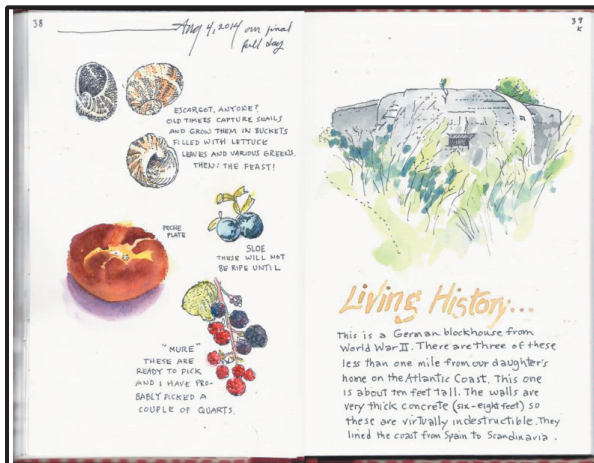 38
Aug 4, 2014 our final
full day
ESCARGOT, ANYONE?
OLD TIMERS CAPTURE SNAILS
AND GROW THEM IN BUCKETS
FILLED WITH LETTUCE
LEAVES AND VARIOUS GREENS.
THEN: THE FEAST!
PECHE
PLATE
SLOE
THESE WILL NOT
BE RIPE UNTIL
"MURE"
THESE ARE
READY TO PICK
AND I HAVE PRO-
BABLY PICKED A
COUPLE OF QUARTS.
39
K
Living History...
This is a German blockhouse from
World War II. There are three of these
less than one mile from our daughter's
home on the Atlantic Coast. This one
is about ten feet tall. The walls are
very thick concrete (six-eight feet) so
these are virtually indestructible. They
lined the coast from Spain to Scandinavia.